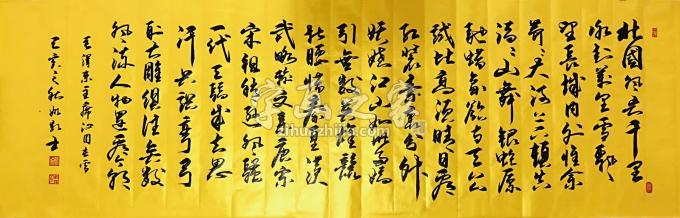 北國風光千里
冰封萬里雪飄
望長城内外惟余
莽莽大河上下頓失
滔滔山舞銀蛇原
馳蠟象欲与天公
試比高須晴日看
紅裝素裹分外
妖嬈江山如此多嬌
引無數英雄競
折腰惜秦皇漢
武略輸文采唐宗
宋祖稍遜風騷
一代天驕成吉思
汗只識彎弓
射大雕俱往矣數
風流人物還看今朝
毛澤東主席沁園春雪
己亥之秋
字画之家